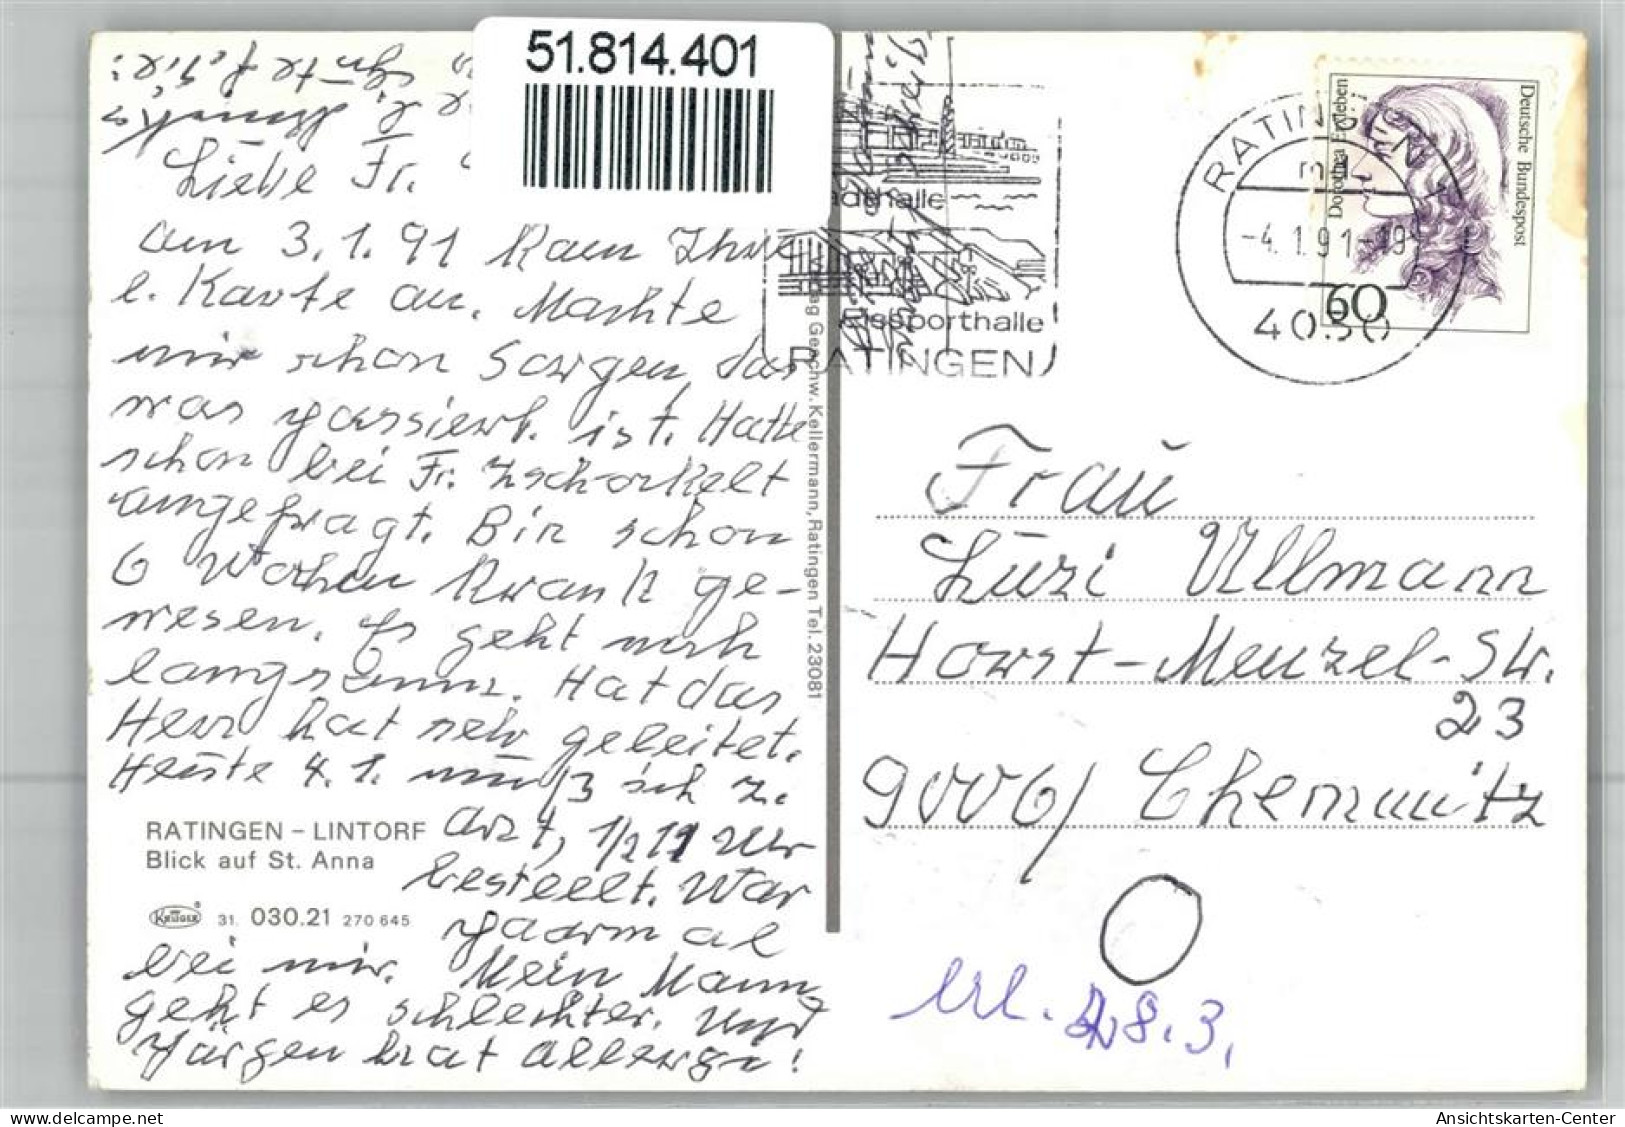 51.814.401
Liebe Fr.
am 3.1.91 kam Ihre
l. Karte an. Machte
mir schon Sorgen, das
was passiert ist. Hatte
schon bei Fr. Zschorkelt
angefragt. Bin schon
6 Wochen krank ge-
wesen. Es geht nur
langsam. Hat das
Herz hat sehr geleitet.
Heute 4.1. muß ich z.
Arzt, 1/2 11 Uhr
bestellt. War
paarmal
bei mir. Mein Mann
geht es schlechter. Und
Jürgen hat Allergn!
RATINGEN – LINTORF
Blick auf St. Anna
KRÜGER 31. 030.21 270 645
Verlag Geschw. Kellermann, Ratingen Tel. 23081
Stadthalle
Eissporthalle
RATINGEN
RATINGEN
-4.1.91-19
4030
Deutsche Bundespost
Dorothea Erxleben
60
Frau
Luzi Ullmann
Horst-Menzel-Str.
23
9006/ Chemnitz
erl. 28.3.
Ansichtskarten-Center